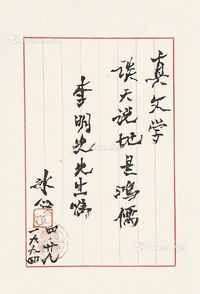 真文学
谈天说地是鸿儒
李明先生
冰心
四廿九
一九九四